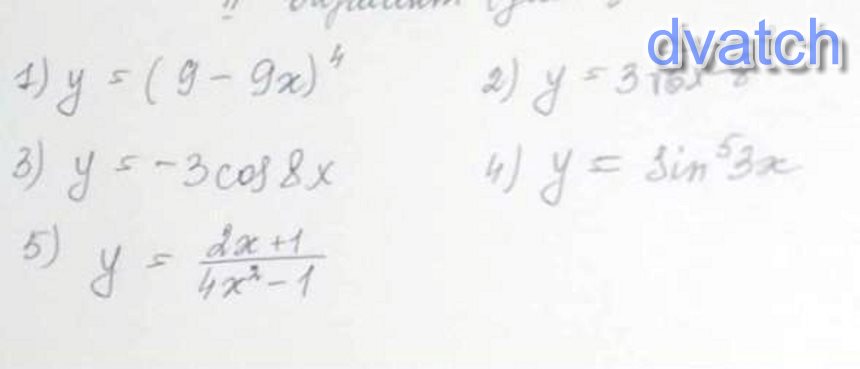 dvatch
1) y = (9 - 9x)⁴
2) y = 3
3) y = -3cos 8x
4) y = sin⁵3x
5) y = \frac{2x+1}{4x²-1}